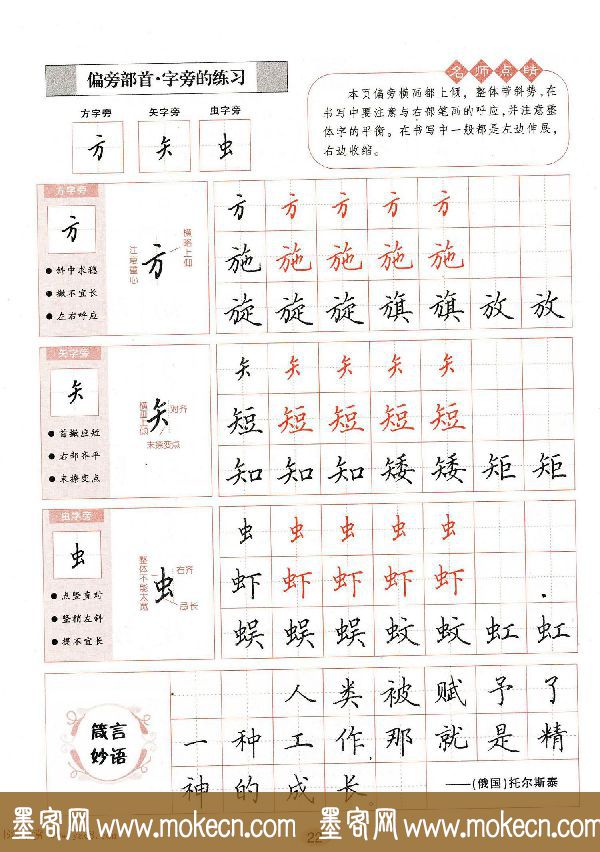 偏旁部首·字旁的练习
名师点睛
本页偏旁横画都上倾,整体带斜势,在
书写中要注意与右部笔画的呼应,并注意整
体字的平衡。在书写中一般都是左边伸展,
右边收缩。
方字旁 矢字旁 虫字旁
方 矢 虫
方字旁
方
斜中求稳
撇不宜长
左右呼应
方
横略上仰
注意重心
方 方 方 方 方
施 施 施 施 施
旋 旋 旋 旗 旗 放 放
矢字旁
矢
首撇应短
右部齐平
末捺变点
矢
对齐
横画上倾
末捺变点
矢 矢 矢 矢 矢
短 短 短 短 短
知 知 知 矮 矮 矩 矩
虫字旁
虫
点竖直对
竖稍左斜
提不宜长
虫
整体不能太宽
右齐
虫 虫 虫 虫 虫
虾 虾 虾 虾 虾
蜈 蜈 蜈 蚊 蚊 虹 虹
箴言
妙语
人类被赋予了
一种工作,那就是精
神的成长。
——(俄国)托尔斯泰
22
墨客网 www.mokecn.com 墨客网 www.mokecn.com